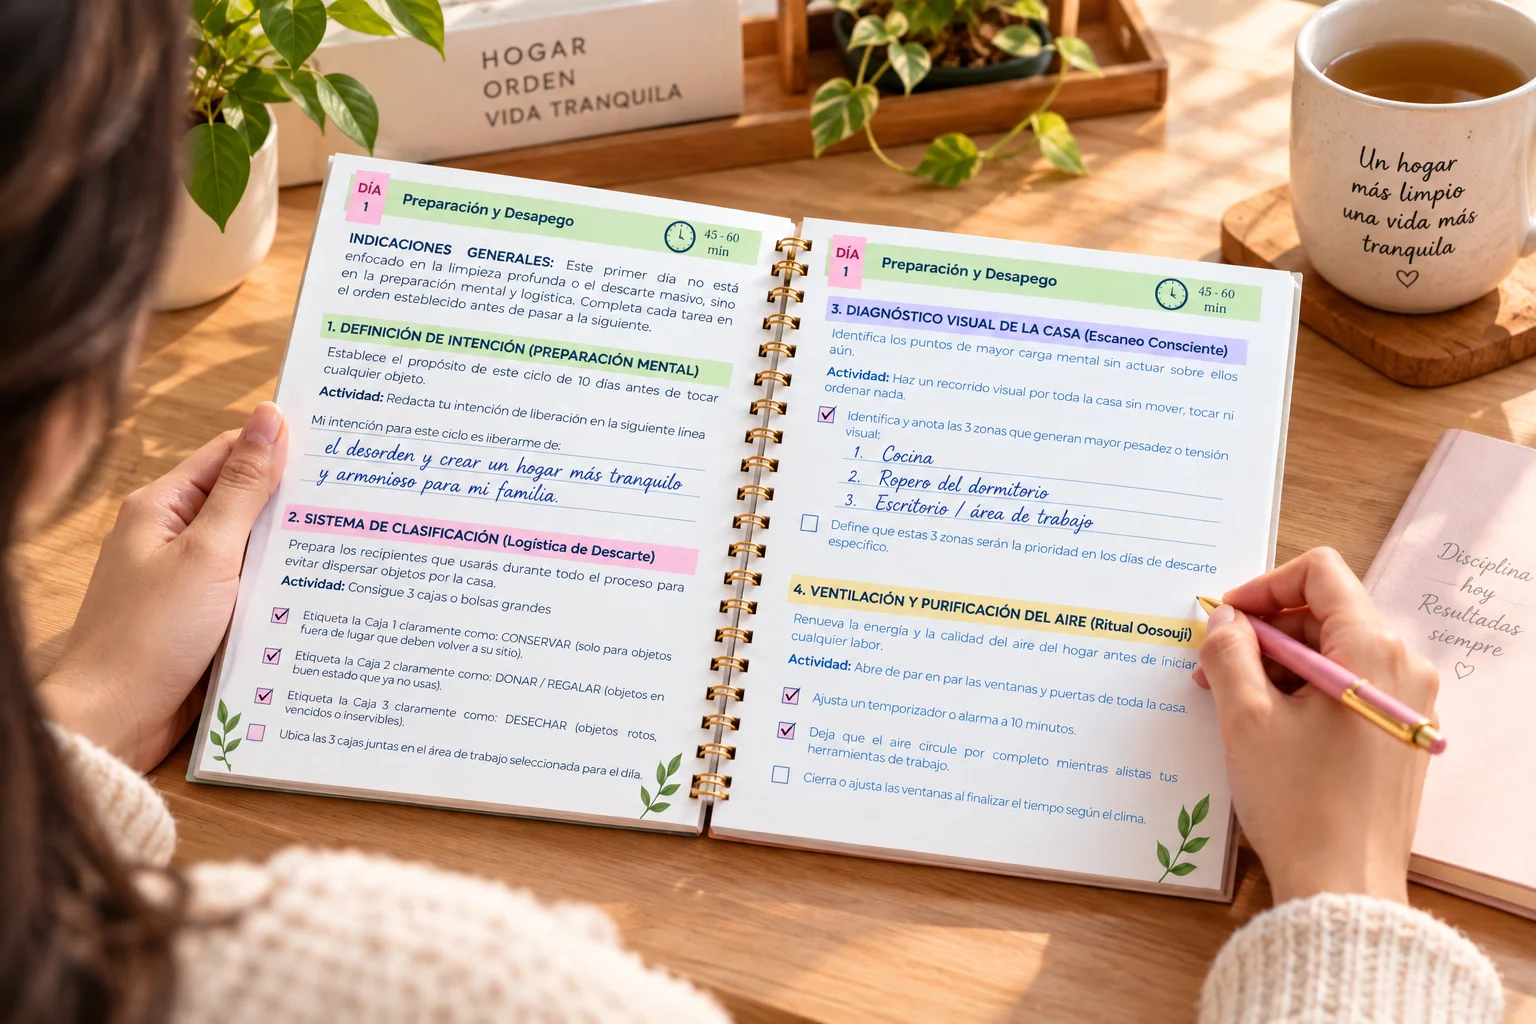 HOGAR
ORDEN
VIDA TRANQUILA
Un hogar
más limpio
una vida más
tranquila
DÍA
1
Preparación y Desapego
45 - 60
min
INDICACIONES GENERALES: Este primer día no está
enfocado en la limpieza profunda o el descarte masivo, sino
en la preparación mental y logística. Completa cada tarea en
el orden establecido antes de pasar a la siguiente.
1. DEFINICIÓN DE INTENCIÓN (PREPARACIÓN MENTAL)
Establece el propósito de este ciclo de 10 días antes de tocar
cualquier objeto.
Actividad: Redacta tu intención de liberación en la siguiente línea
Mi intención para este ciclo es liberarme de:
el desorden y crear un hogar más tranquilo
y armonioso para mi familia.
2. SISTEMA DE CLASIFICACIÓN (Logística de Descarte)
Prepara los recipientes que usarás durante todo el proceso para
evitar dispersar objetos por la casa.
Actividad: Consigue 3 cajas o bolsas grandes
Etiqueta la Caja 1 claramente como: CONSERVAR (solo para objetos
fuera de lugar que deben volver a su sitio).
Etiqueta la Caja 2 claramente como: DONAR / REGALAR (objetos en
buen estado que ya no usas).
Etiqueta la Caja 3 claramente como: DESECHAR (objetos rotos,
vencidos o inservibles).
Ubica las 3 cajas juntas en el área de trabajo seleccionada para el dila.
DÍA
1
Preparación y Desapego
45 - 60
min
3. DIAGNÓSTICO VISUAL DE LA CASA (Escaneo Consciente)
Identifica los puntos de mayor carga mental sin actuar sobre ellos
aún.
Actividad: Haz un recorrido visual por toda la casa sin mover, tocar ni
ordenar nada.
Identifica y anota las 3 zonas que generan mayor pesadez o tensión
visual:
1. Cocina
2. Ropero del dormitorio
3. Escritorio / área de trabajo
Define que estas 3 zonas serán la prioridad en los días de descarte
especifico.
4. VENTILACIÓN Y PURIFICACIÓN DEL AIRE (Ritual Oosouji)
Renueva la energía y la calidad del aire del hogar antes de iniciar
cualquier labor.
Actividad: Abre de par en par las ventanas y puertas de toda la casa.
Ajusta un temporizador o alarma a 10 minutos.
Deja que el aire circule por completo mientras alistas tus
herramientas de trabajo.
Cierra o ajusta las ventanas al finalizar el tiempo según el clima.
Disciplina
hoy
Resultadas
siempre